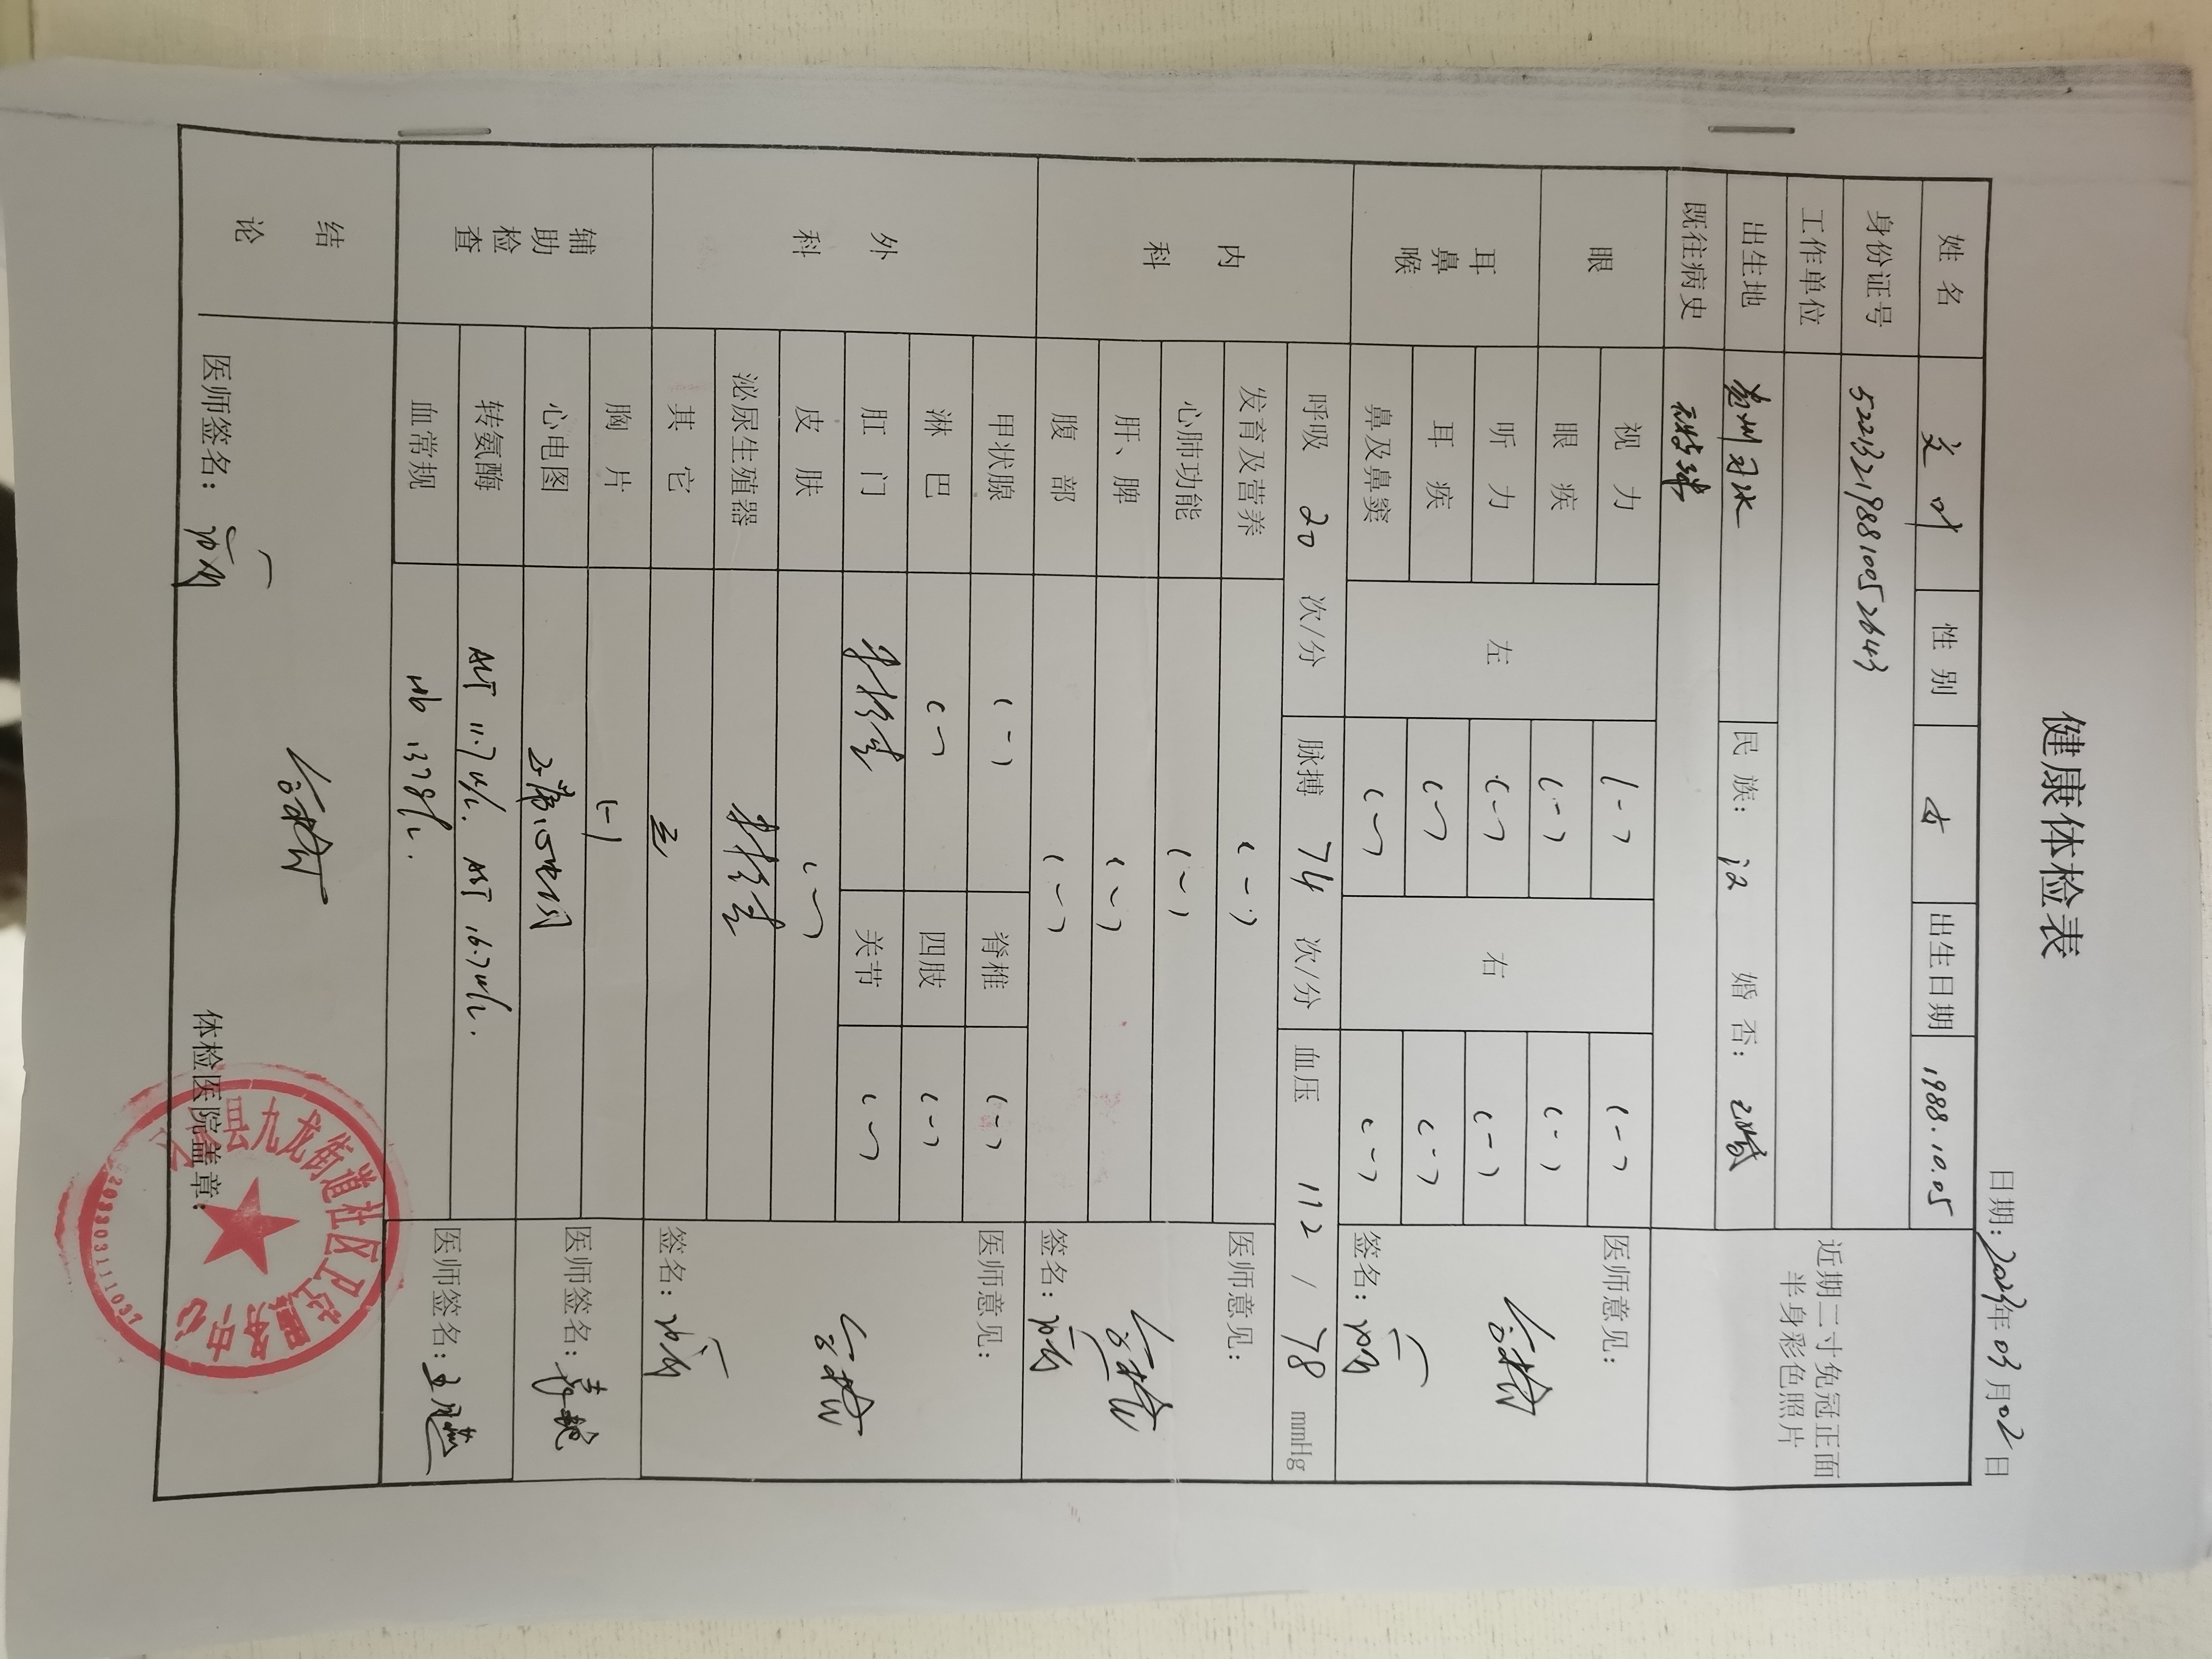 健康体检表
日期：2023年03月02日
姓名 性别 女 出生日期 1988.10.05
身份证号 522132198810052643
工作单位
出生地 贵州习水 民族：汉 婚否：已婚
既往病史 无特殊
近期二寸免冠正面
半身彩色照片
眼 视力 左 (-) 右 (-)
眼疾 (-) (-)
耳鼻喉 听力 (-) (-)
耳疾 (-) (-)
鼻及鼻窦 (-) (-)
医师意见：
合格
签名：
呼吸 20 次/分 脉搏 74 次/分 血压 112 / 78 mmHg
内科 发育及营养 (-)
心肺功能 (-)
肝、脾 (-)
腹部 (-)
医师意见：
合格
签名：
外科 甲状腺 (-) 脊椎 (-)
淋巴 (-) 四肢 (-)
肛门 未检查 关节 (-)
皮肤 (-)
泌尿生殖器 未检查
其它 无
医师意见：
合格
签名：
辅助检查 胸片 (-)
心电图 正常心电图
医师签名：
转氨酶 ALT 11.7u/L. AST 16.7u/L.
血常规 Hb 137g/L.
医师签名：
结论 合格
医师签名： 体检医院盖章：
县九龙街道社区卫生服务中心